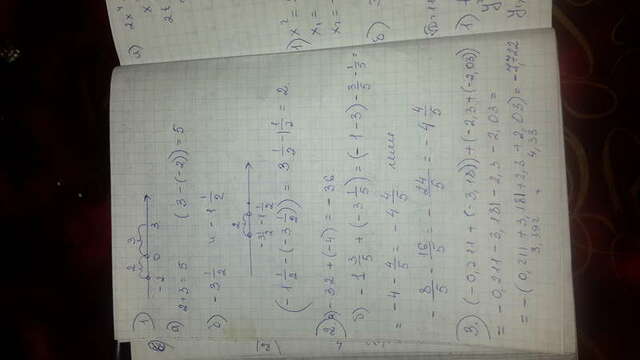 1)
2 3
-2 0 3
а) 2+3=5 (3-(-2))=5
б) -3 1/2 и -1 1/2
2
-3 1/2 -1 1/2
(-1 1/2 -(-3 1/2)) = 3 1/2 - 1 1/2 = 2.
2) а) -32+(-4) = -36
б) -1 3/5 + (-3 1/5) = (-1-3) - 3/5 - 1/5 =
= -4 - 4/5 = -4 4/5 или
- 8/5 - 16/5 = - 24/5 = -4 4/5
3.) (-0,211+(-3,181))+(-2,3+(-2,03))
= -0,211-3,181-2,3-2,03=
= -(0,211+3,181+2,3+2,03)=-7,722
3,392 + 4,33